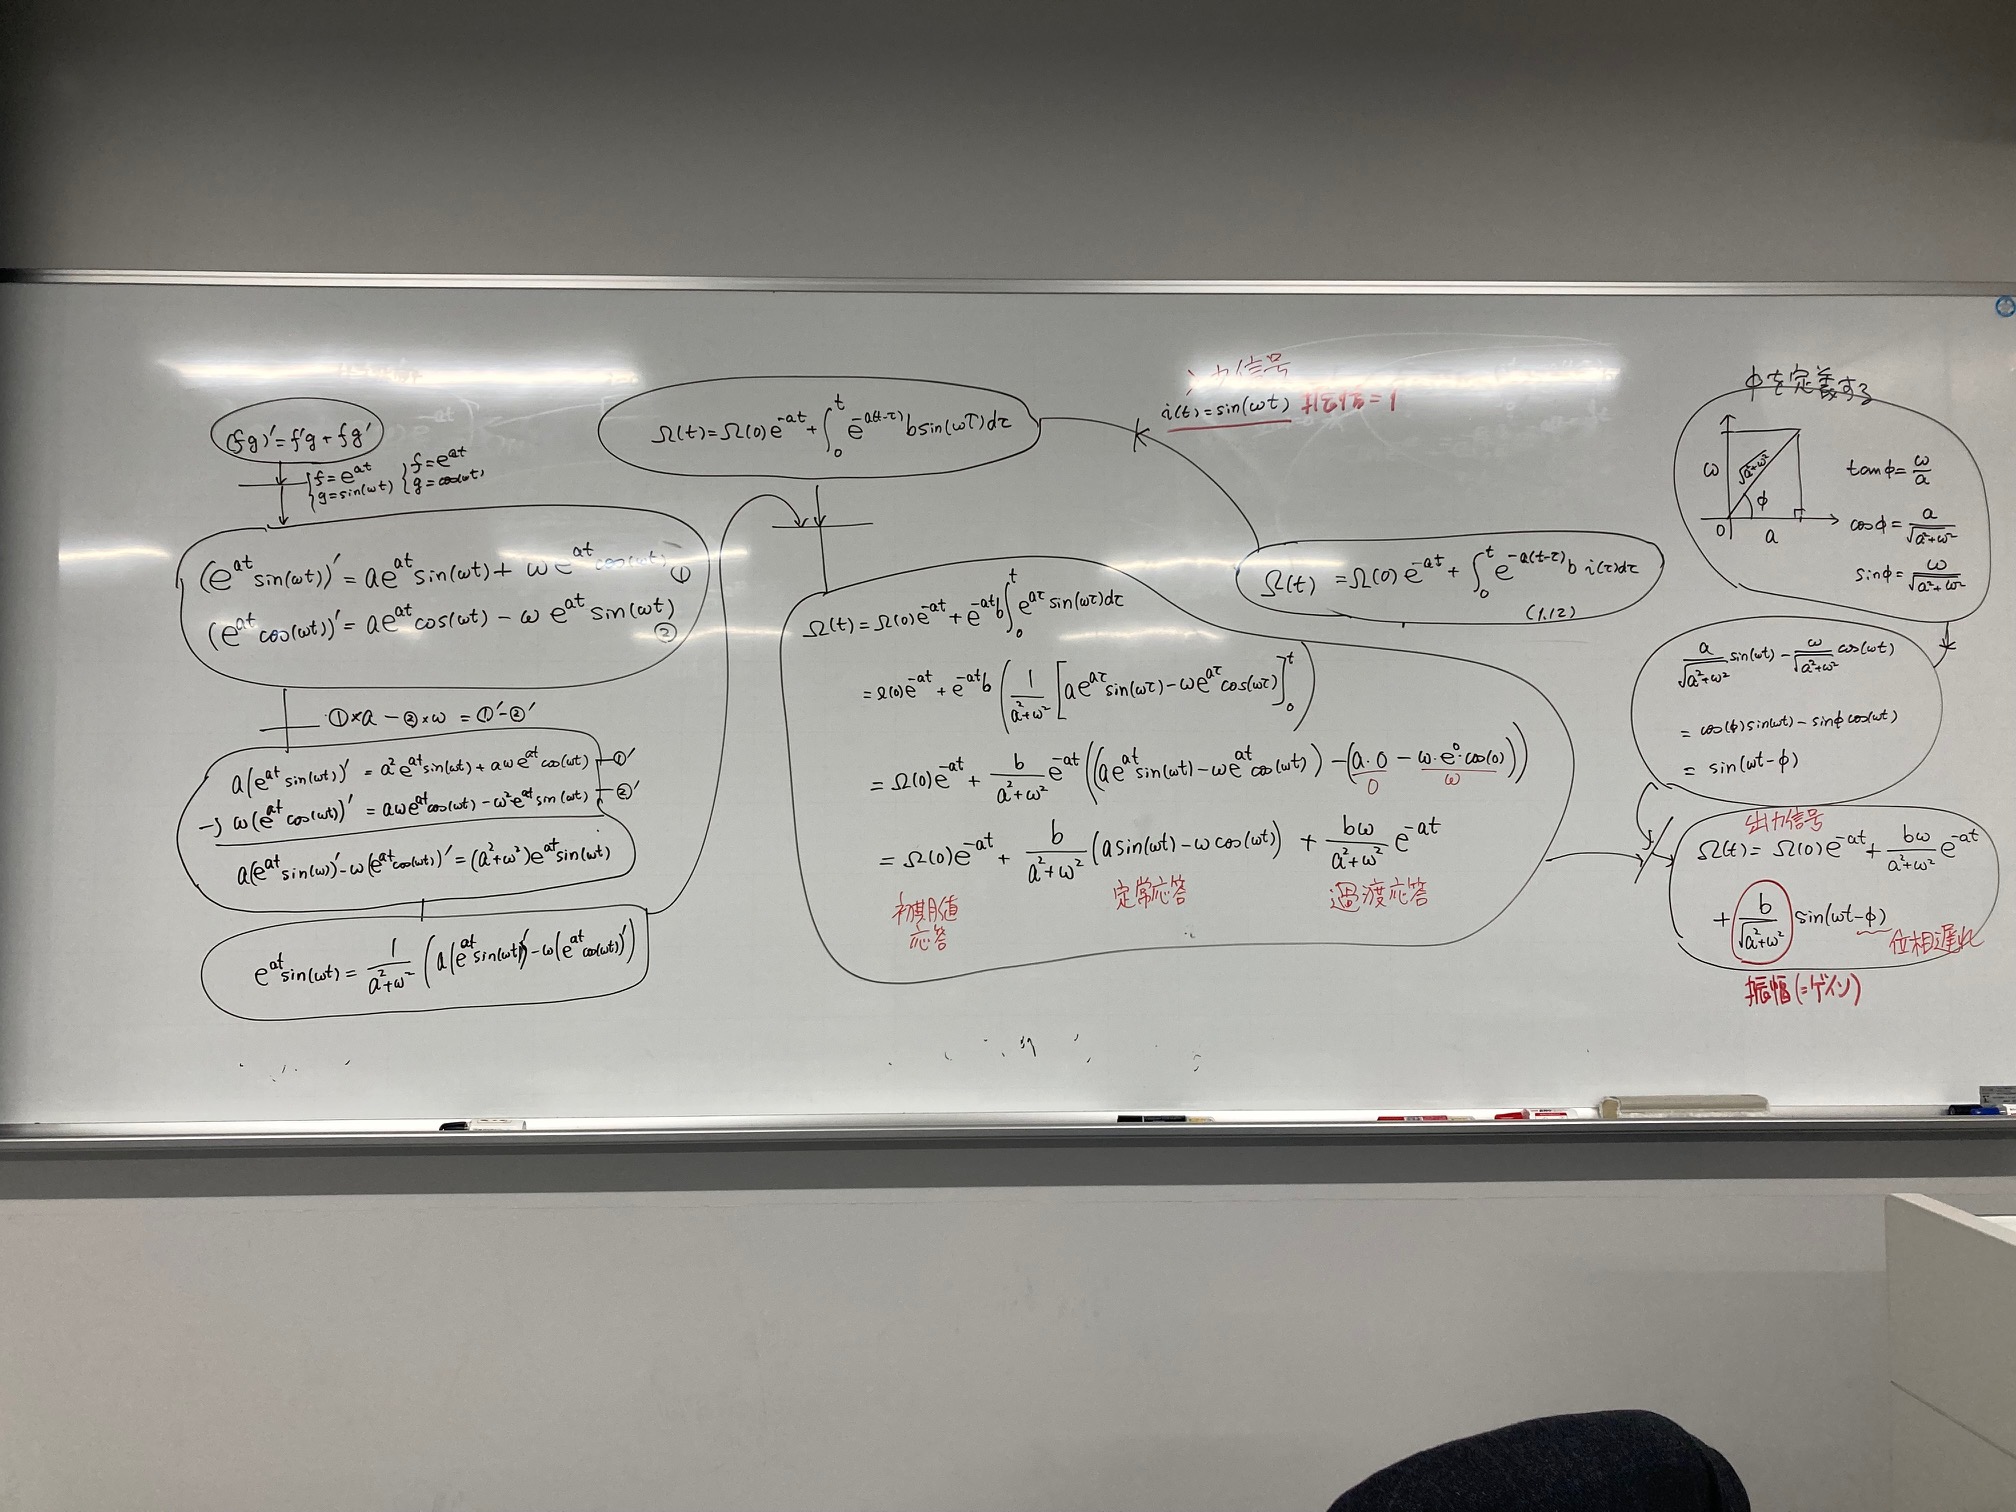 (fg)' = f'g + fg'
f = e^{at}
g = sin(ωt)
f = e^{at}
g = cos(ωt)
(e^{at} sin(ωt))' = ae^{at} sin(ωt) + ωe^{at} cos(ωt) ①
(e^{at} cos(ωt))' = ae^{at} cos(ωt) − ωe^{at} sin(ωt) ②
①×a − ②×ω = ①'−②'
a(e^{at} sin(ωt))' = a²e^{at} sin(ωt) + aωe^{at} cos(ωt) ①'
−) ω(e^{at} cos(ωt))' = aωe^{at} cos(ωt) − ω²e^{at} sin(ωt) ②'
a(e^{at} sin(ω))' − ω(e^{at} cos(ωt))' = (a²+ω²)e^{at} sin(ωt)
e^{at} sin(ωt) = 1/(a²+ω²) (a(e^{at} sin(ωt))' − ω(e^{at} cos(ωt))')
Ω(t) = Ω(0)e^{-at} + ∫_0^t e^{-a(t-τ)} b sin(ωτ)dτ
入力信号
i(t) = sin(ωt) 振幅=1
Ω(t) = Ω(0)e^{-at} + ∫_0^t e^{-a(t-τ)} b i(τ)dτ
(1.12)
Ω(t) = Ω(0)e^{-at} + e^{-at}b∫_0^t e^{aτ} sin(ωτ)dτ
= Ω(0)e^{-at} + e^{-at}b (1/(a²+ω²) [ae^{aτ} sin(ωτ) − ωe^{aτ} cos(ωτ)]_0^t)
= Ω(0)e^{-at} + b/(a²+ω²) e^{-at}((ae^{at} sin(ωt) − ωe^{at} cos(ωt)) − (a·0 − ω·e^0·cos(0)))
0 ω
= Ω(0)e^{-at} + b/(a²+ω²) (a sin(ωt) − ω cos(ωt)) + bω/(a²+ω²) e^{-at}
初期値
応答
定常応答
過渡応答
φを定義する
ω
√a²+ω²
φ
0
a
tanφ = ω/a
cosφ = a/√a²+ω²
sinφ = ω/√a²+ω²
a/√a²+ω² sin(ωt) − ω/√a²+ω² cos(ωt)
= cos(φ)sin(ωt) − sinφ cos(ωt)
= sin(ωt−φ)
出力信号
Ω(t) = Ω(0)e^{-at} + bω/(a²+ω²) e^{-at}
+ b/√a²+ω² sin(ωt−φ)
位相遅れ
振幅(=ゲイン)